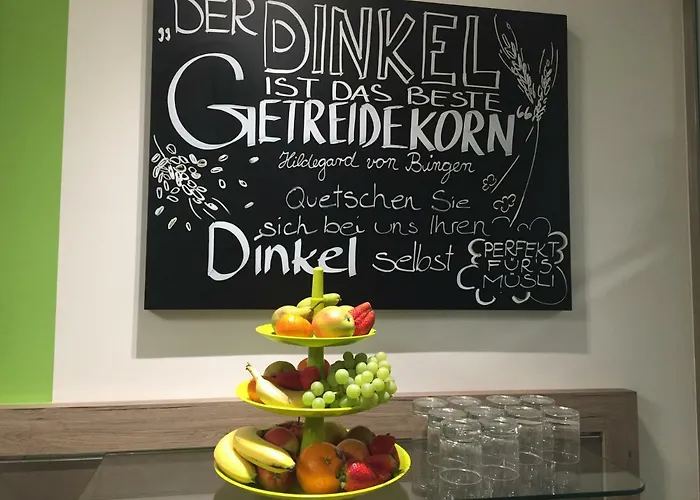 „DER DINKEL
IST DAS BESTE
GETREIDEKORN“
Hildegard von Bingen
Quetschen Sie
sich bei uns Ihren
Dinkel selbst
PERFEKT
FÜR'S
MÜSLI